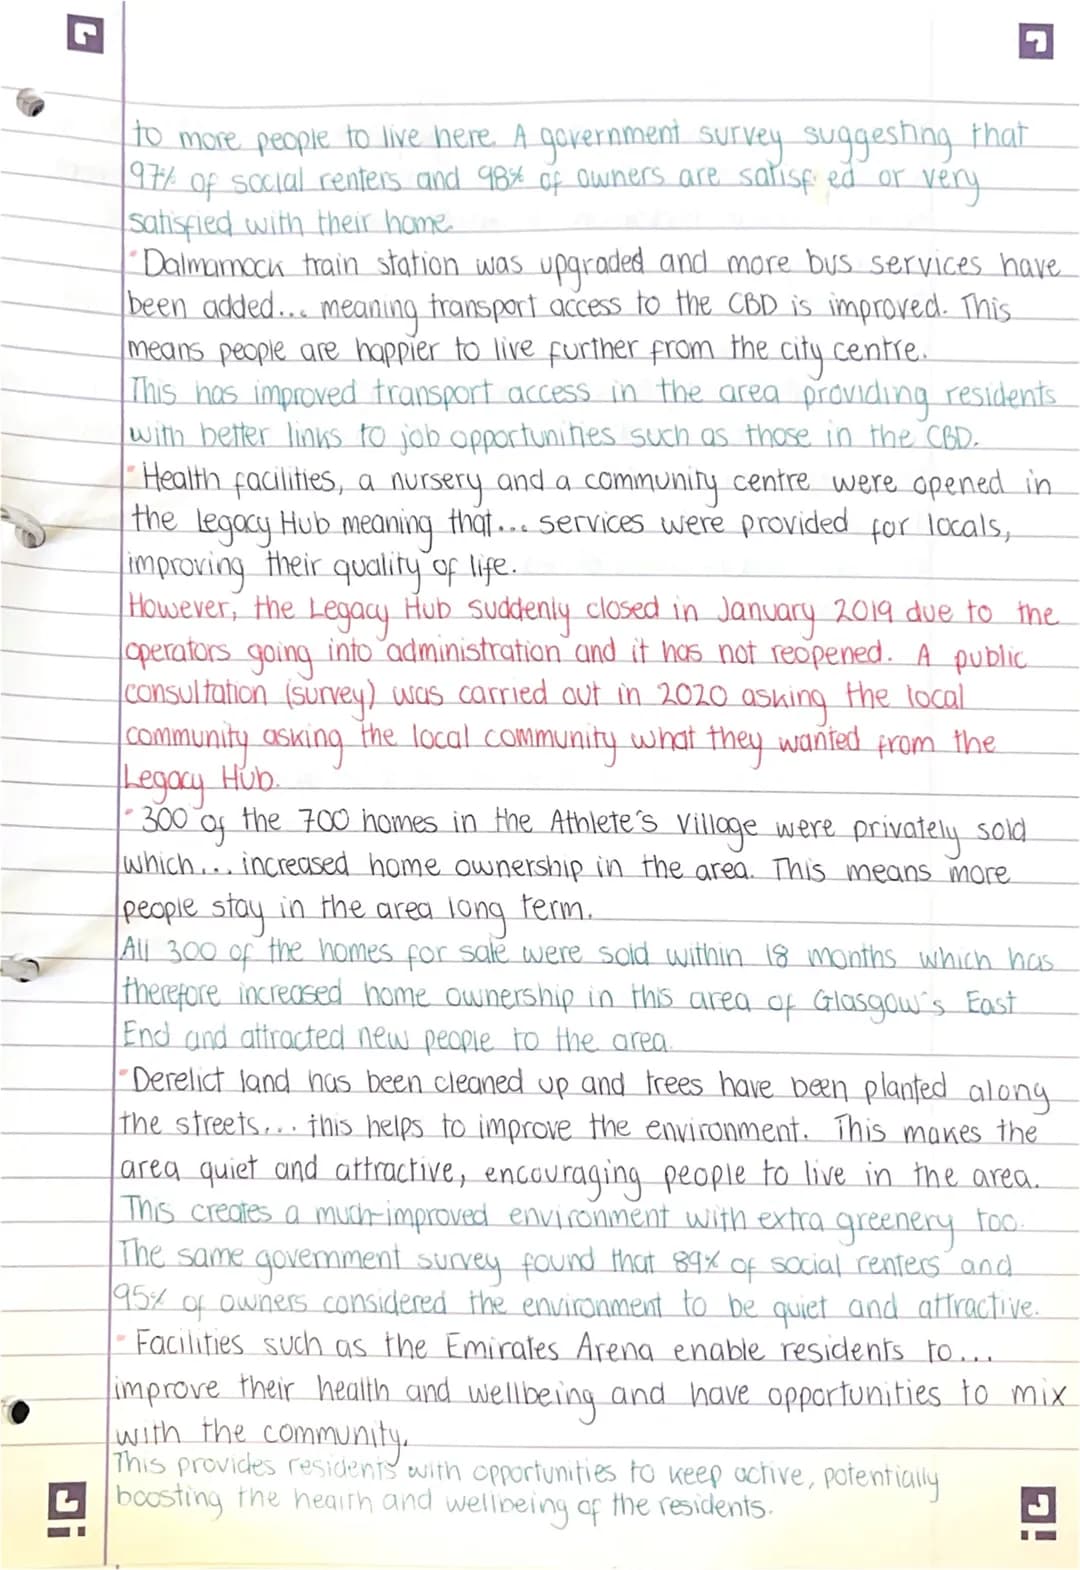 to more people to live here. A government survey suggesting that
97% of social renters and 98% of owners are satisfied or very
satisfied with their home.
• Dalmarnock train station was upgraded and more bus services have
been added... meaning transport access to the CBD is improved. This
means people are happier to live further from the city centre.
This has improved transport access in the area providing residents
with better links to job opportunities such as those in the CBD.
• Health facilities, a nursery and a community centre were opened in
the Legacy Hub meaning that... services were provided for locals,
improving their quality of life.
However, the Legacy Hub suddenly closed in January 2019 due to the
operators going into administration and it has not reopened. A public
consultation (survey) was carried out in 2020 asking the local
community asking the local community what they wanted from the
Legacy Hub.
• 300 of the 700 homes in the Athlete's Village were privately sold
which... increased home ownership in the area. This means more
people stay in the area long term.
All 300 of the homes for sale were sold within 18 months which has
therefore increased home ownership in this area of Glasgow's East
End and attracted new people to the area.
• Derelict land has been cleaned up and trees have been planted along
the streets... this helps to improve the environment. This makes the
area quiet and attractive, encouraging people to live in the area.
This creates a much-improved environment with extra greenery too.
The same government survey found that 89% of social renters and
95% of owners considered the environment to be quiet and attractive.
• Facilities such as the Emirates Arena enable residents to...
improve their health and wellbeing and have opportunities to mix
with the community.
This provides residents with opportunities to keep active, potentially
boosting the health and wellbeing of the residents.